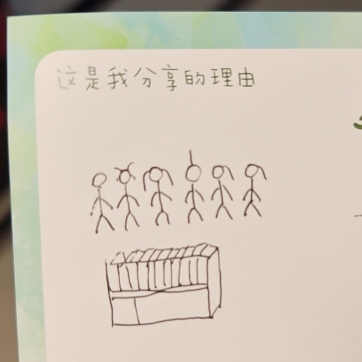 这是我分享的理由